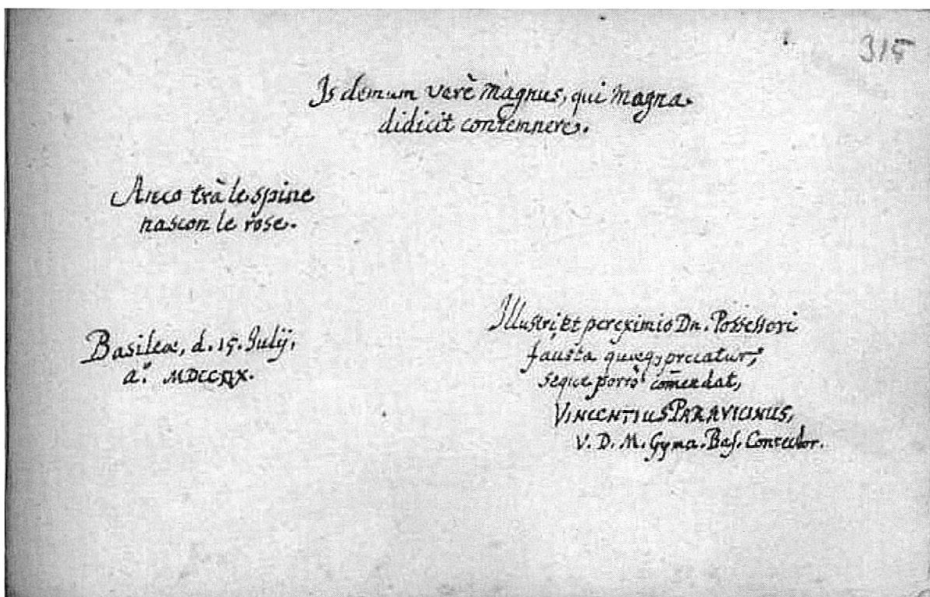 315
Is demum verè magnus, qui magna
didicit contemnere.
Anco trà le spine
nascon le rose.
Basileæ, d. 15. Julij,
a.º
Illustri et pereximio Dn. Possessori
fausta quæq; precatur,
seque porrò com̄endat,
VINCENTIUS PARAVICINUS,
V. D. M. Gymn. Bas. Conrector.